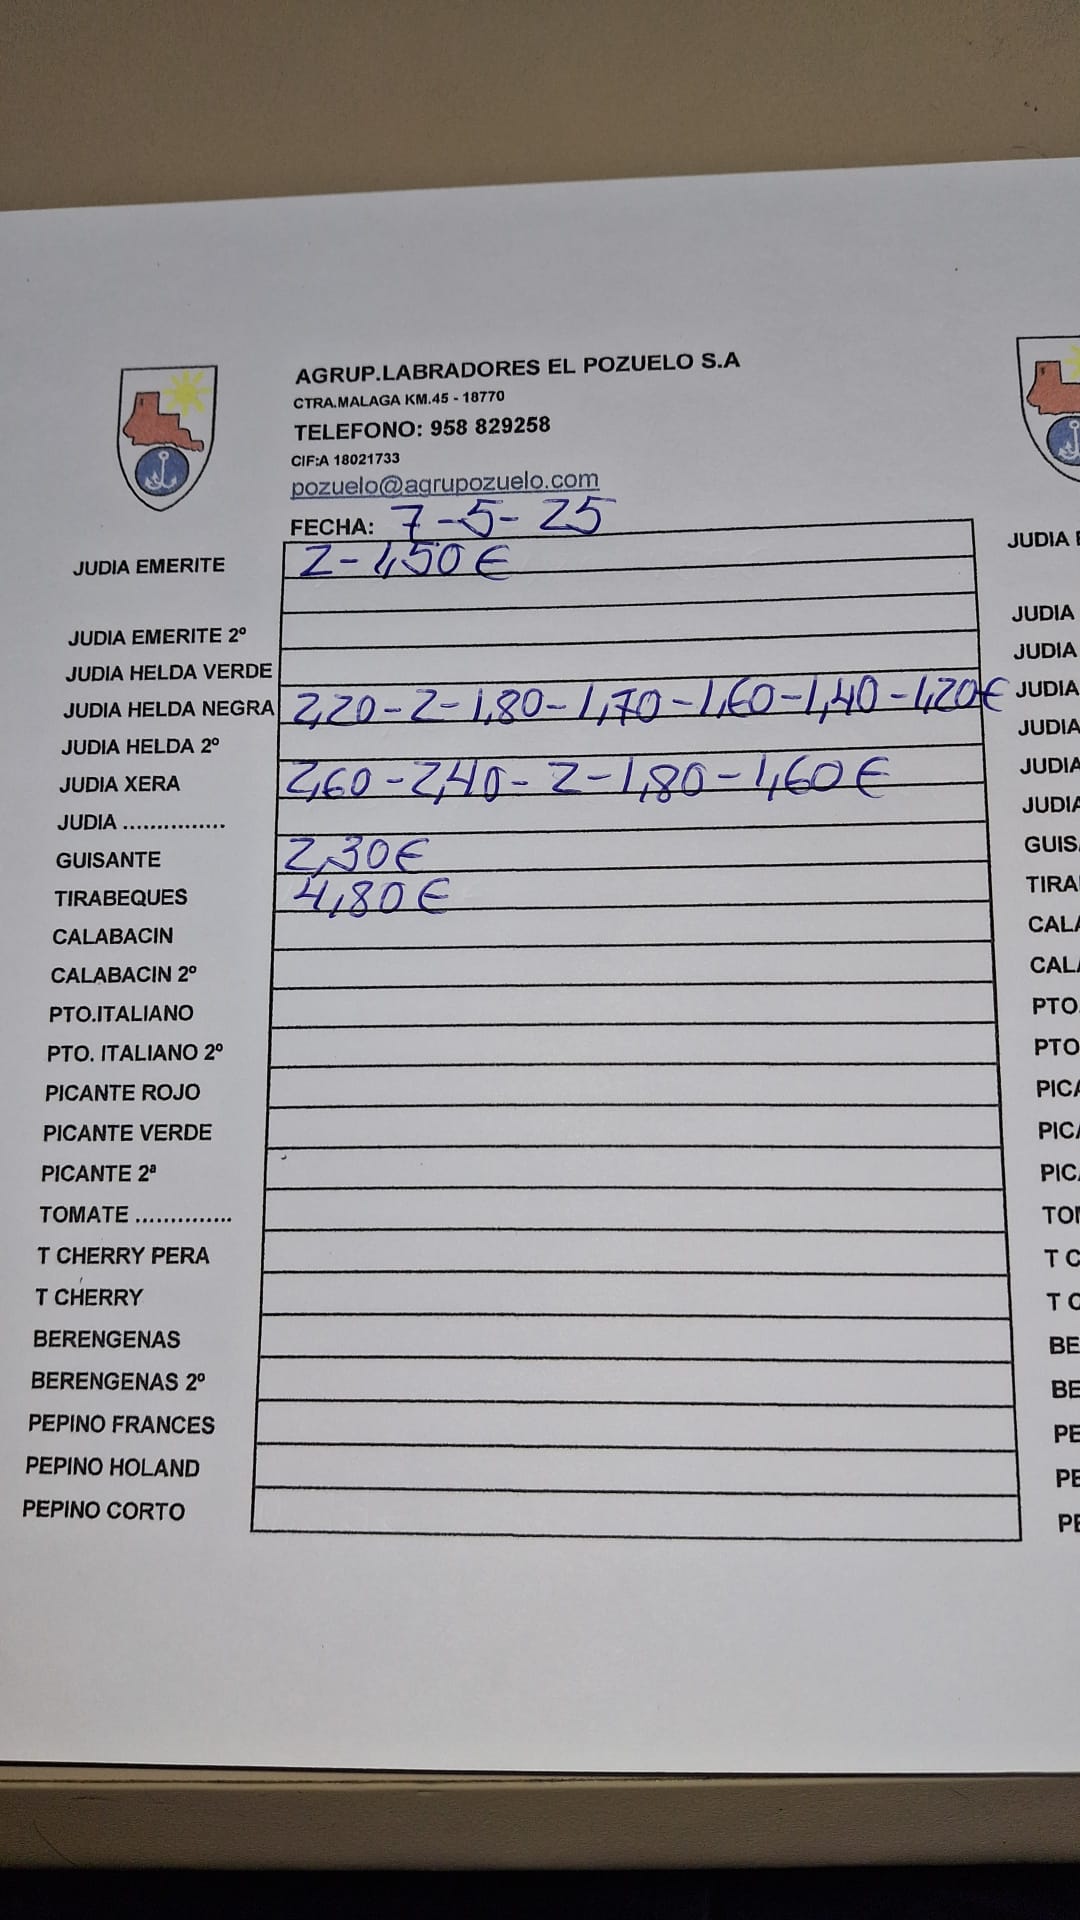 AGRUP.LABRADORES EL POZUELO S.A
CTRA.MALAGA KM.45 - 18770
TELEFONO: 958 829258
CIF:A 18021733
pozuelo@agrupozuelo.com
FECHA: 7-5-25
JUDIA EMERITE 2-1,50€
JUDIA EMERITE 2º
JUDIA HELDA VERDE
JUDIA HELDA NEGRA 2,20-2-1,80-1,70-1,60-1,40-1,20€
JUDIA HELDA 2º
JUDIA XERA 2,60-2,40-2-1,80-1,60€
JUDIA ...............
GUISANTE 2,30€
TIRABEQUES 4,80€
CALABACIN
CALABACIN 2º
PTO.ITALIANO
PTO. ITALIANO 2º
PICANTE ROJO
PICANTE VERDE
PICANTE 2ª
TOMATE ..............
T CHERRY PERA
T CHERRY
BERENGENAS
BERENGENAS 2º
PEPINO FRANCES
PEPINO HOLAND
PEPINO CORTO
JUDIA
JUDIA
JUDIA
JUDIA
JUDIA
JUDIA
JUDIA